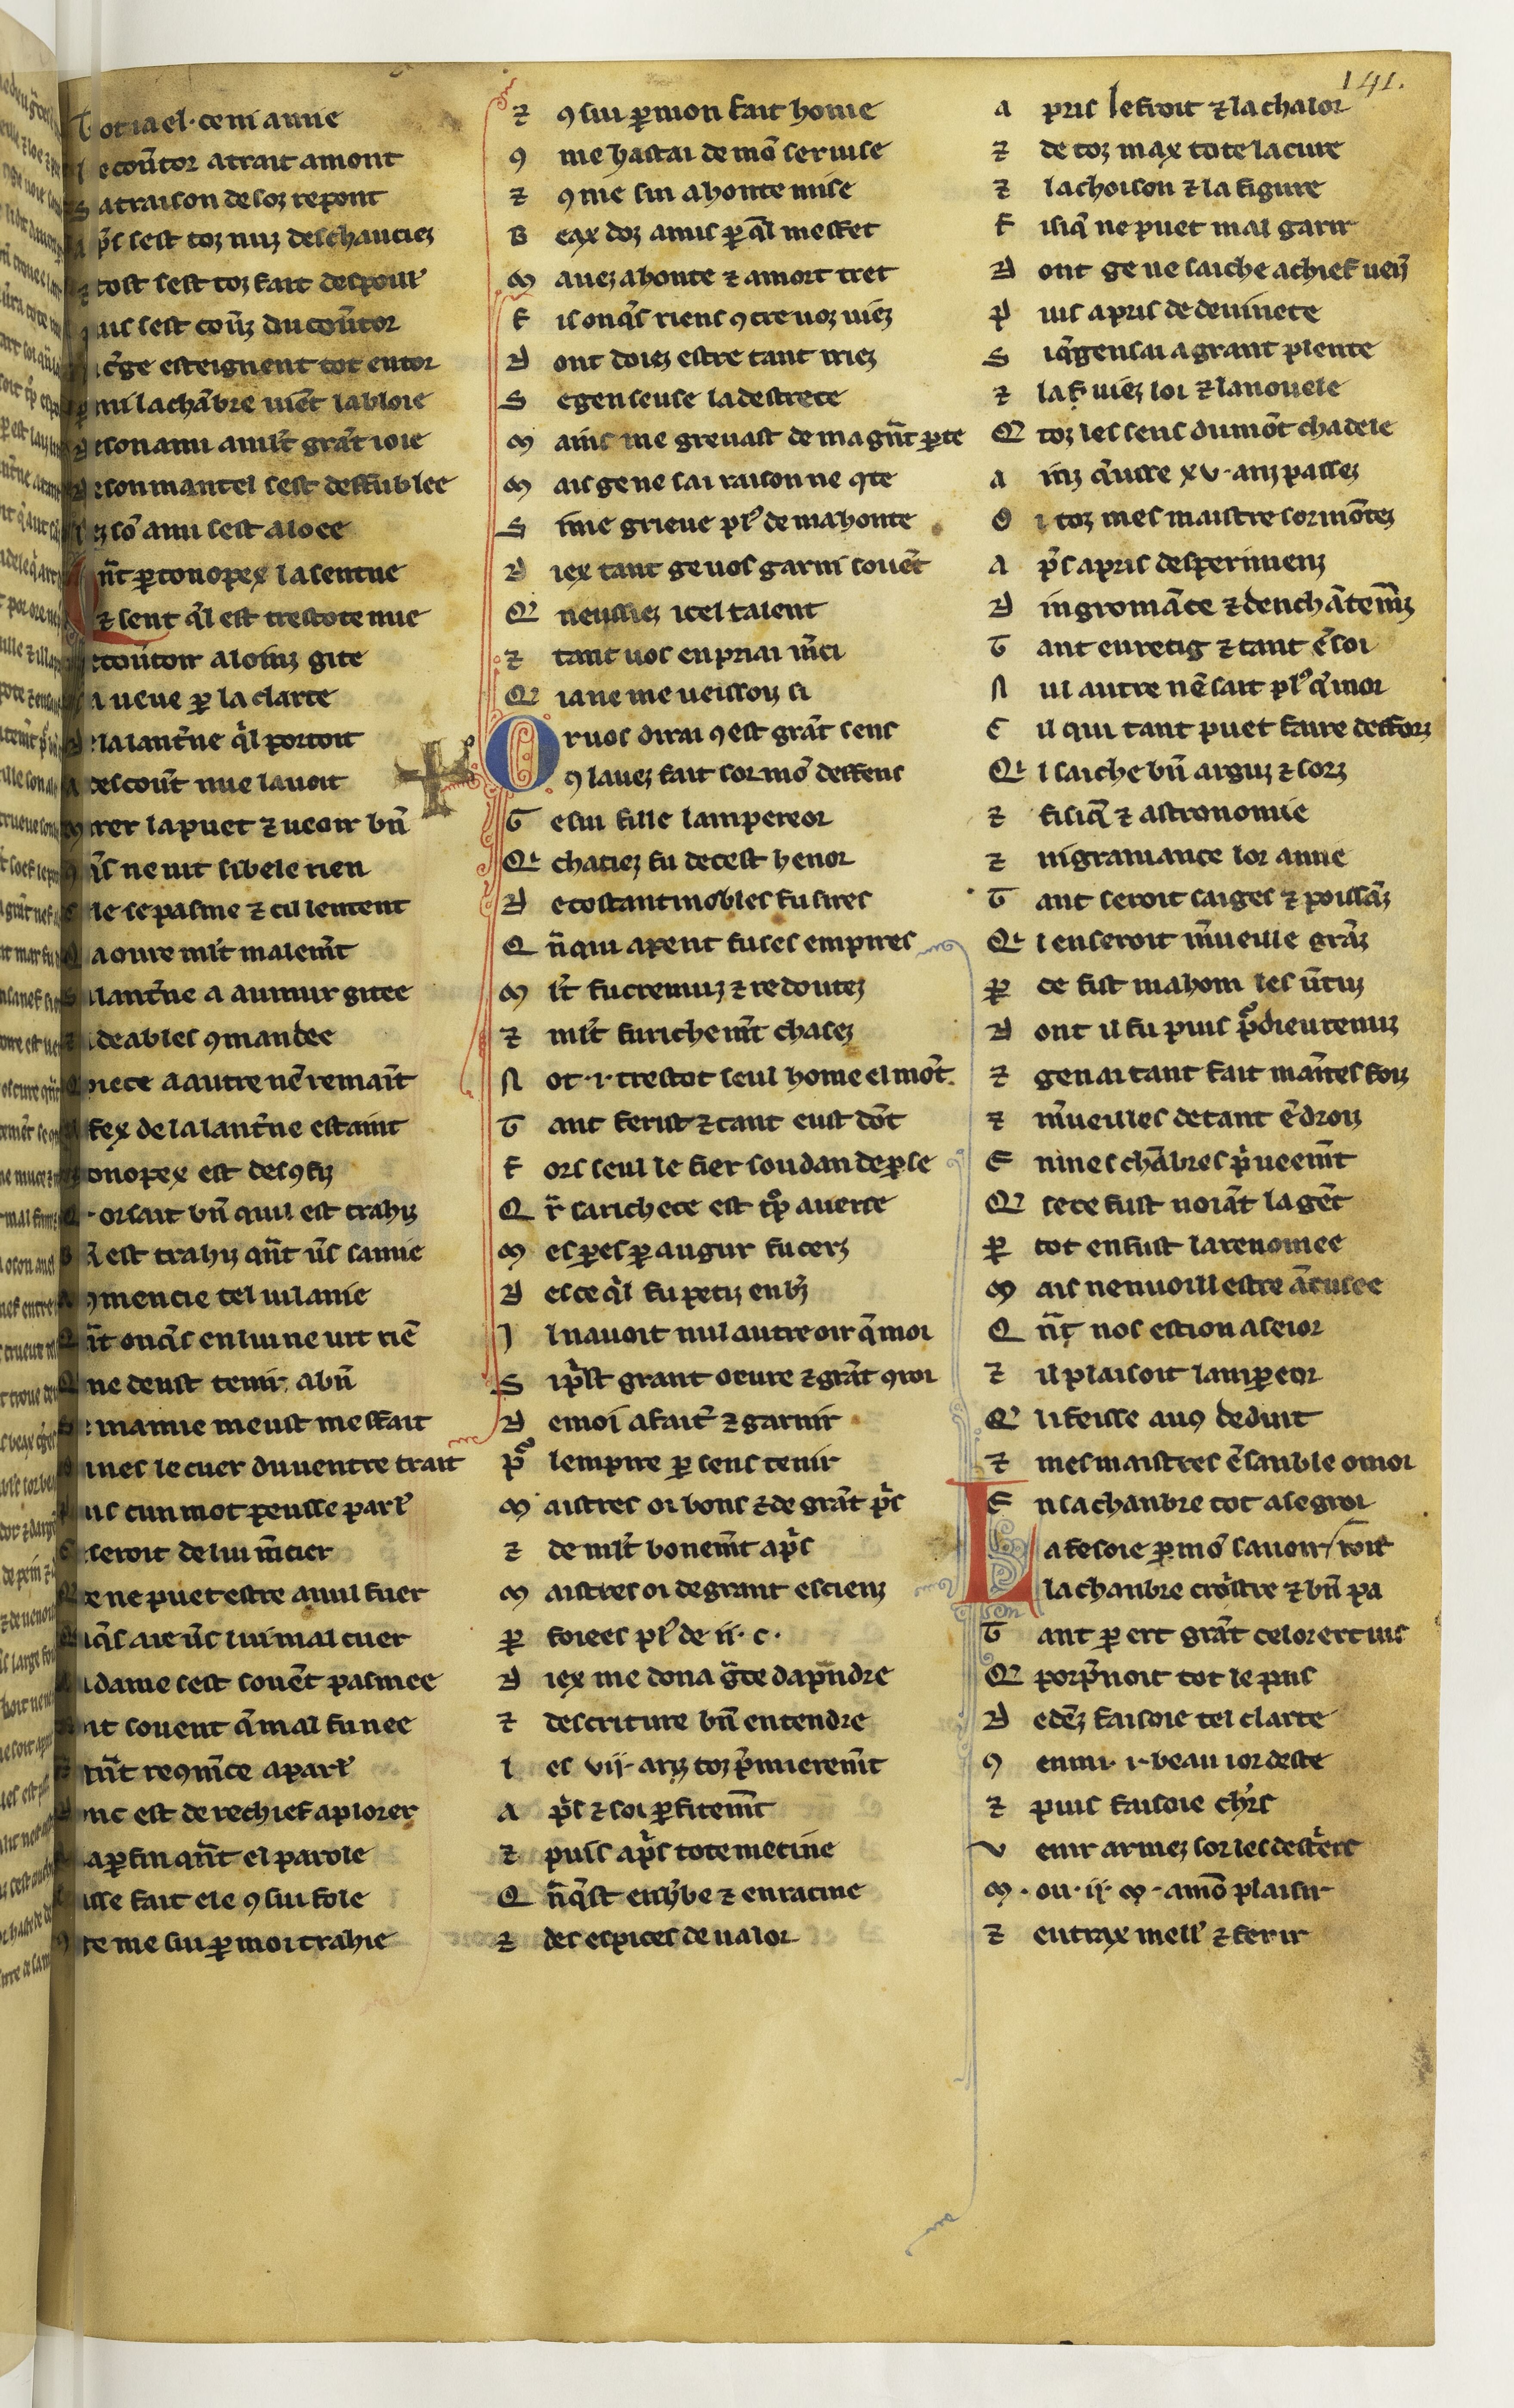 141.
ot ia el · ceni amie
e cou᷑tor atrait amont
atraison de soz repont
p᷑s sest toz nuz deschauciez
tost sest toz fait despoill᷑
uis sest cou᷑z du cou᷑tor
c᷑ge esteignent tot entor
mi la cha̅bre uie̅t la bloie
son ami a mlt᷑ gra̅t ioie
son mantel sest desfublee
so̅ ami sest alo ee
Qn̅t ꝑtonopex la sentue
⁊ sent q᷑l est trestote nue
cou᷑toir aloinz gite
a ueue ꝑ la clarte
la lant᷑ne q᷑l portoit
descou᷑t nue la uoit
rer la puet ⁊ ueoir bn̅
q᷑s ne uit si bele rien
le se pasme ⁊ cil lentent
a oure mlt᷑ malem̅t
lant᷑ne a au mur gitee
deables ꝯmandee
piece a autre ne̅ remai̅t
fex de la lant᷑ne estaint
onopex est desꝯfiz
or sait bn̅ quil est trahiz
est trahiz qn̅t u᷑s samie
ꝯmencie tel uilanie
n̅t onq᷑s en lui ne uit rie̅
ne deust tenir abn̅
mamie meust mesfait
mes le cuer du uentre trait
us cun mot peusse parl᷑
seroit de lui m᷑cier
e ne puet estre a nul fuer
q᷑s aie u᷑s lui mal cuer
dame sest soue̅t pasmee
it souent q̅ mal fu nee
tn̅t reꝯm̅ce a parl᷑
nc est de rechief a plorer
a ꝑfin qn̅t el parole
sse fait ele ꝯ sui fole
te me sui ꝑ moi trahie
⁊ ꝯ sui ꝑ mon fait honie
ꝯ me hastai de mo̅ seruise
⁊ ꝯ me sui a honte mise
B eax doz amis ꝑ q̅l mesfet
M auez a honte ⁊ a mort tret
F is onq᷑s riens ꝯtre uoz uiez
D ont doiez estre tant iriez
S e gen seuse la destrece
M ains me greuast de ma gn̅t ꝑte
M ais ge ne sai raison ne ꝯte
S i me grieue pl᷑ de ma honte
D iex tant ge uos garni soue̅t
Q neussiez icel talent
⁊ tant uos en priai m᷑ci
Q ia ne me ueissoiz si
O r uos dirai ꝯ est gra̅t sens
ꝯ lauez fait sor mo̅ desfens
G e sui fille lampereor
Q chatiez fu de cest henor
D e costantinobles fu sires
Q n̅qui apent fu ses empires
M lt᷑ fu cremuz ⁊ redoutez
⁊ mlt᷑ fu riche m̅t chasez
N ot · i · trestot seul home el mo̅t
T ant ferist ⁊ tant eust do̅t
F ors seul le fier soudan de ꝑse
Q r̅ sa richece est tp̊ auerse
M es ꝑes ꝑ augur fu cerz
D es ce q᷑l fu petiz en bz̅
I l nauoit nul autre oir q̅ moi
S i p᷑st grant oeure ⁊ gra̅t ꝯroi
D e moi afait᷑ ⁊ garnir
P᷑ lempire ꝑ sens tenir
M aistres oi bons ⁊ de gra̅t p᷑s
⁊ de mlt᷑ bonem̅t ap᷑s
M aistres oi de grant escienz
P foiees pl᷑ de ii · c ·
D iex me dona g᷑ce dap̅ndre
⁊ descriture bn̅ entendre
L es vii · arz toz p᷑mierem̅t
A p᷑s ⁊ soi ꝑfitem̅t
⁊ puis ap᷑s tote mecine
Q n̅q᷑st en h᷑be ⁊ en racine
⁊ des espices de ualor
A pris le froit ⁊ la chalor
⁊ de toz max tote la cure
⁊ lachoison ⁊ la figure
F isiq̅ ne puet mal garir
D ont ge ne saiche a chief uen᷑
P uis apris de deuinete
S i q̅ gen sai a grant plente
⁊ la f᷑ uiez loi ⁊ la nouele
Q toz les sens du mo̅t chadele
A inz q̅ usse xv · anz passez
O i toz mes maistre sormo̅tez
A p᷑s apris desperimenz
D ingroma̅ce ⁊ dencha̅tem̅z
T ant en retig ⁊ tant e̅ soi
N ul autre ne̅ sait pl᷑ q̅ moi
C il qui tant puet faire desforz
Q l saiche bn̅ arguz ⁊ sorz
⁊ fisiq̅ ⁊ astronomie
⁊ nigramance lor amie
T ant seroit saiges ⁊ poissa̅z
Q l en seroit m᷑ueille gra̅z
P ce fist mahom les u᷑tuz
D ont il fu puis p᷑ dieu tenuz
⁊ gen ai tant fait mai̅tes foiz
⁊ m᷑ueilles de tant e̅droiz
E n mes cha̅bres p᷑ueem̅t
Q sece fust uoia̅t la ge̅t
P tot en fust la renomee
M ais nen uoill estre a̅cusee
Q n̅t nos estion a seior
⁊ il plaisoit lampeor
Q li feisse auꝯ deduit
⁊ mes maistres e̅sanble o moi
E n sa chanbre tot a segroi
L a fesoie ꝑ mo̅ sauoir
la chanbre cro᷑stre ⁊ bn̅ pa roir
T ant ꝑ ert gra̅t ce lor ert uis
Q porp᷑noit tot le puis
D ede̅z faisoie tel clarte
ꝯ en mi · i · beau ior deste
⁊ puis faisoie ch᷑rs
V enir armez sor les dest᷑ers
M · ou · ii · M · a mo̅ plaisir
⁊ entrax mell᷑ ⁊ ferir